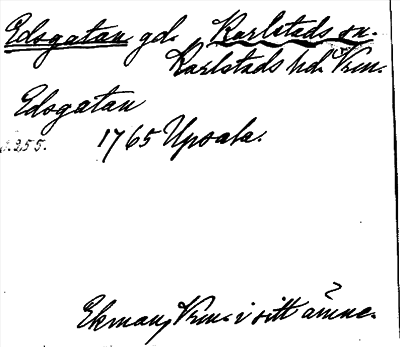 Edsgatan gd. Karlstads sn.
Karlstads hd. Vrm.
Edsgatan
s. 255.
1765 Upsala.
Ekman, Vrm. i sitt ämne.